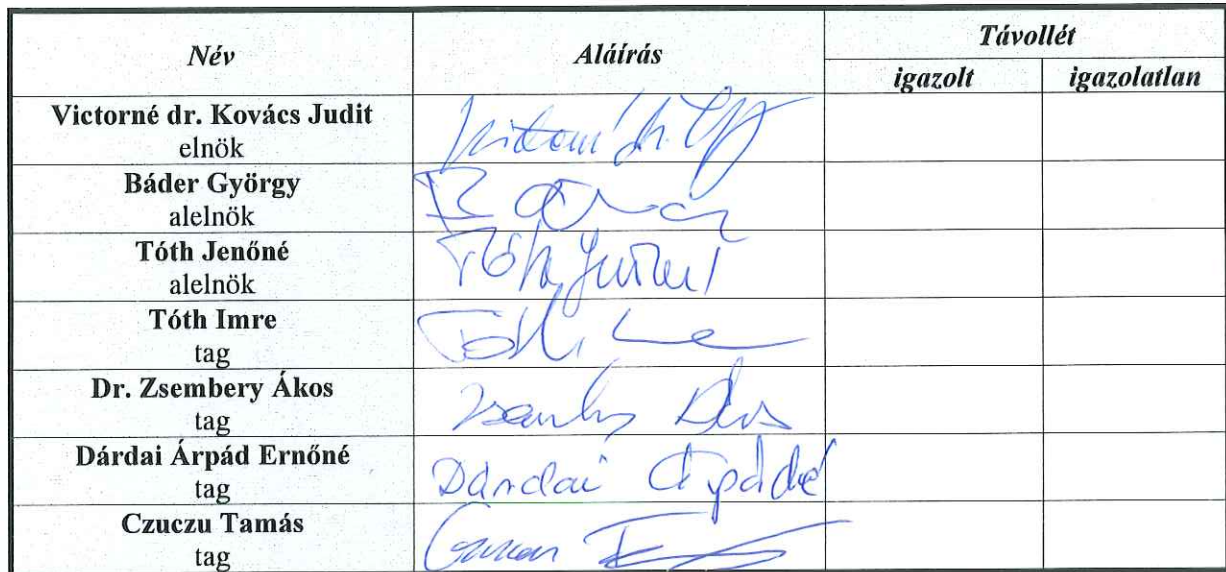 Név Aláírás Távollét
igazolt igazolatlan
Victorné dr. Kovács Judit
elnök
Báder György
alelnök
Tóth Jenőné
alelnök
Tóth Jenőné
Tóth Imre
tag
Tóth
Dr. Zsembery Ákos
tag
Dárdai Árpád Ernőné
tag
Dárdai Árpádné
Czuczu Tamás
tag